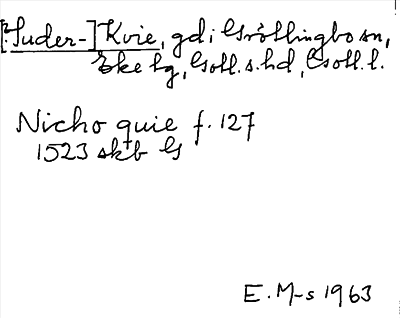 [Suder-] Kvie, gd i Grötlingbo sn,
Eke tg, Gotl. s. hd, Gotl. l.
Nicho quie f. 127
1523 skb G
E. M-s 1963